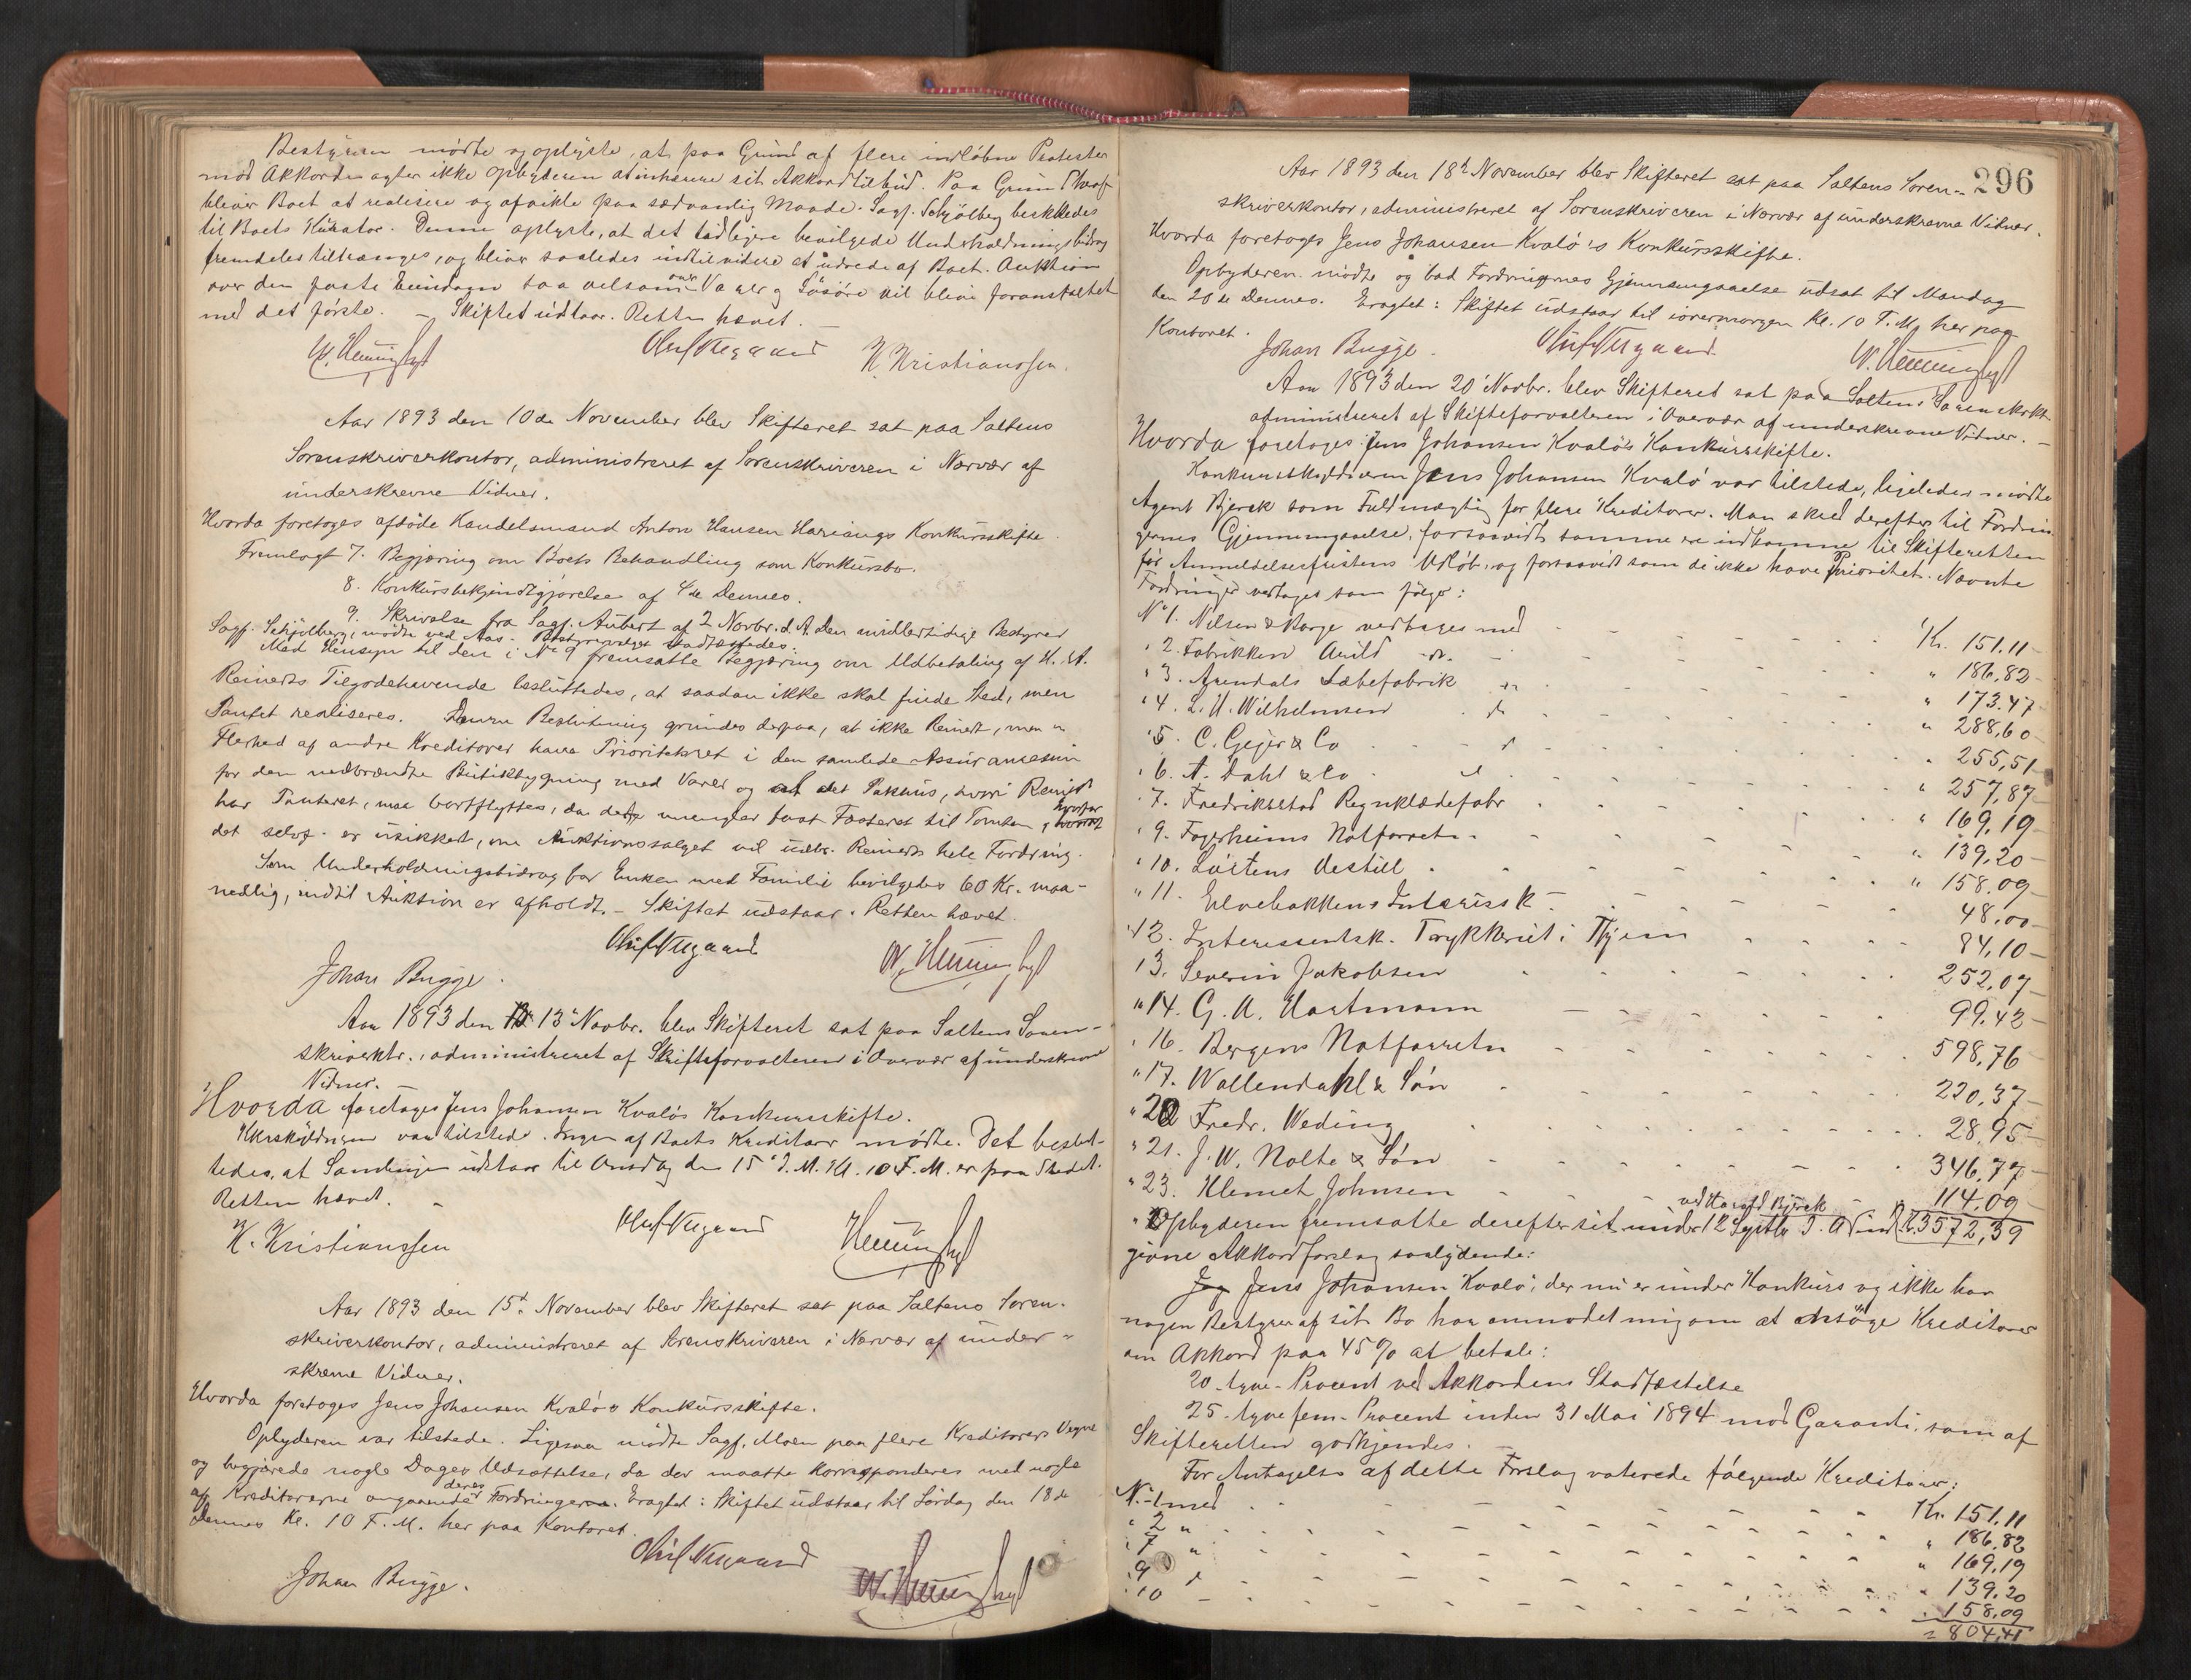 Bestyreren mødte og oplyste, at paa Grund af flere indløbne Protester
mod Akkorden agter ikke Opbyderen at inhærere sit Akkordtilbud. Paa Grund heraf
bliver Boet at realisere og afvikle paa sædvanlig Maade. Sagf. Schjølberg beskikkedes
til Boets Kurator. Denne oplyste, at det tidligere bevilgede Underholdningsbidrag
fremdeles tiltrænges, og bliver saaledes indtil videre at udrede af Boet. Auktion
over den faste Eiendom saa velsom over Varer og Løsøre vil blive foranstaltet
med det første. — Skiftet udstaar. Retten hævet. —
Oluf Aagaard
K. Kristianssen.
Aar 1893 den 10de November blev Skifteret sat paa Saltens
Sorenskriverkontor, administreret af Sorenskriveren i Nærvær af
underskrevne Vidner.
Hvorda foretoges afdøde Handelsmand Anton Hansen Hariangs Konkursskifte.
Fremlagt 7. Begjæring om Boets Behandling som Konkursbo.
8. Konkursbekjendtgjørelse af 4de Dennes.
9. Skrivelse fra Sagf. Aubert af 2 Novbr. d. A. Den midlertidige Bestyrer
Sagf. Schjølberg, mødte ved Aas. Bestyrervalget stadfæstedes.
Med Hensyn til den i No 9 fremsatte Begjæring om Udbetaling af H. A.
Reinerts Tilgodehavende besluttedes, at saadan ikke skal finde Sted, men
Pantet realiseres. Denne Beslutning grundes derpaa, at ikke Reinert, men en
Flerhed af andre Kreditorer have Prioritetsret i den samlede Assurancesum
for den nedbrændte Butikbygning med Varer og at det Pakhus, hvori Reinert
har Panteret, maa bortflyttes, da det mangler fast Fæsteret til Tomten, hvorfor
det selvf. er usikkert, om Auktionssalget vil udbr. Reinerts hele Fordring.
Som Underholdningsbidrag for Enken med Familie bevilgedes 60 Kr. maa-
nedlig, indtil Auktion er afholdt. — Skiftet udstaar. Retten hævet.
Oluf Aagaard
Johan Bugge.
Aar 1893 den 13' Novbr. blev Skifteret sat paa Saltens Soren-
skriverktr., administreret af Skifteforvalteren i Overvær af underskrevne
Vidner.
Hvorda foretoges Jens Johansen Kvaløs Konkursskifte.
Kkrsskyldneren var tilstede. Ingen af Boets Kreditorer mødte. Det beslut-
tedes, at Samlingen udstaar til Onsdag den 15' d. M. Kl. 10 F. M. er paa Stedet.
Retten hævet. —
K. Kristianssen
Oluf Aagaard
Aar 1893 den 15d. November blev Skifteret sat paa Saltens Soren-
skriverkontor, administreret af Sorenskriveren i Nærvær af under-
skrevne Vidner.
Hvorda foretoges Jens Johansen Kvaløs Konkursskifte.
Opbyderen var tilstede. Ligesaa mødte Sagf. Moen paa flere Kreditorers Vegne
og begjærede nogle Dages Udsættelse, da der maatte korresponderes med nogle
af Kreditorerne angaaende deres Fordringer. Eragtet: Skiftet udstaar til Lørdag den 18de
Dennes Kl. 10 F. M. her paa Kontoret.
Oluf Aagaard
Johan Bugge.
296
Aar 1893 den 18d November blev Skifteret sat paa Saltens Soren-
skriverkontor, administreret af Sorenskriveren i Nærvær af underskrevne Vidner.
Hvorda foretoges Jens Johansen Kvalø's Konkursskifte.
Opbyderen mødte og bad Fordringernes Gjennemgaaelse udsat til Mandag
den 20de Dennes. Eragtet: Skiftet udstaar til iovermorgen Kl. 10 F. M. her paa
Kontoret.
Johan Bugge.
Oluf Aagaard
Aar 1893 den 20' Novbr. blev Skifteret sat paa Saltens Sorenskrktr.
administreret af Skifteforvalteren i Overvær af underskrevne Vidner. —
Hvorda foretoges Jens Johansen Kvaløs Konkursskifte.
Konkursskyldneren Jens Johansen Kvalø var tilstede, ligeledes mødte
Agent Bjerck som Fuldmægtig for flere Kreditorer. Man skred derefter til Fordrin
gernes Gjennemgaaelse, forsaavidt samme ere indkomne til Skifteretten
før Anmeldelsesfristens Udløb, og forsaavidt som de ikke have Prioritet. Nævnte
Fordringer vedtages som følger:
No 1. Nilsen & Borge vedtages med Kr. 151.11
" 2. Fabrikken Arild do. " 186,82
" 3. Arendals Sæbefabrik " 173.47
" 4. L. H. Wilhelmsen " 288,60
" 5. C. Gejer & Co " 255,51
" 6. A. Dahl & Co " 257,87
" 7. Fredriksstad Regnklædefabr " 169,19
" 9. Fagerheims Notforretn. " 139,20
" 10. Løitens Destill. " 158.09
" 11. Elvebakkens Interessk 48.00
" 12. Interessentsk. Trykkeriet i Thjem 84,10
" 13. Severin Jakobsen 252,07
" 14. G. A. Hartmann 99.42
" 16. Bergens Notforretn 598,76
" 17. Wallendahl & Søn 220,37
" 20 Fredr. Weding 28,95
" 21. J. W. Nolte & Søn 346,77
" 23. Klemet Johnsen 114,09
ved Harald Bjerck
Opbyderen fremsatte derefter sit under 12 Septbr d. A ind Kr. 3572,39
givne Akkordforslag saalydende:
Jeg Jens Johansen Kvalø, der nu er under Konkurs og ikke har
nogen Bestyrer af sit Bo har anmodet mig om at ansøge Kreditorer
om Akkord paa 45 % at betale:
20 tyve - Procent ved Akkordens Stadfæstelse
25 tyve fem - Procent inden 31 Mai 1894 mod Garanti, som af
Skifteretten godkjendes. —
For Antagelse af dette Forslag voterede følgende Kreditorer:
No 1 med Kr. 151.11
" 2 " " 186,82
" 7 " " 169,19
" 9 " " 139.20
" 10 " 158,09
= 804,41